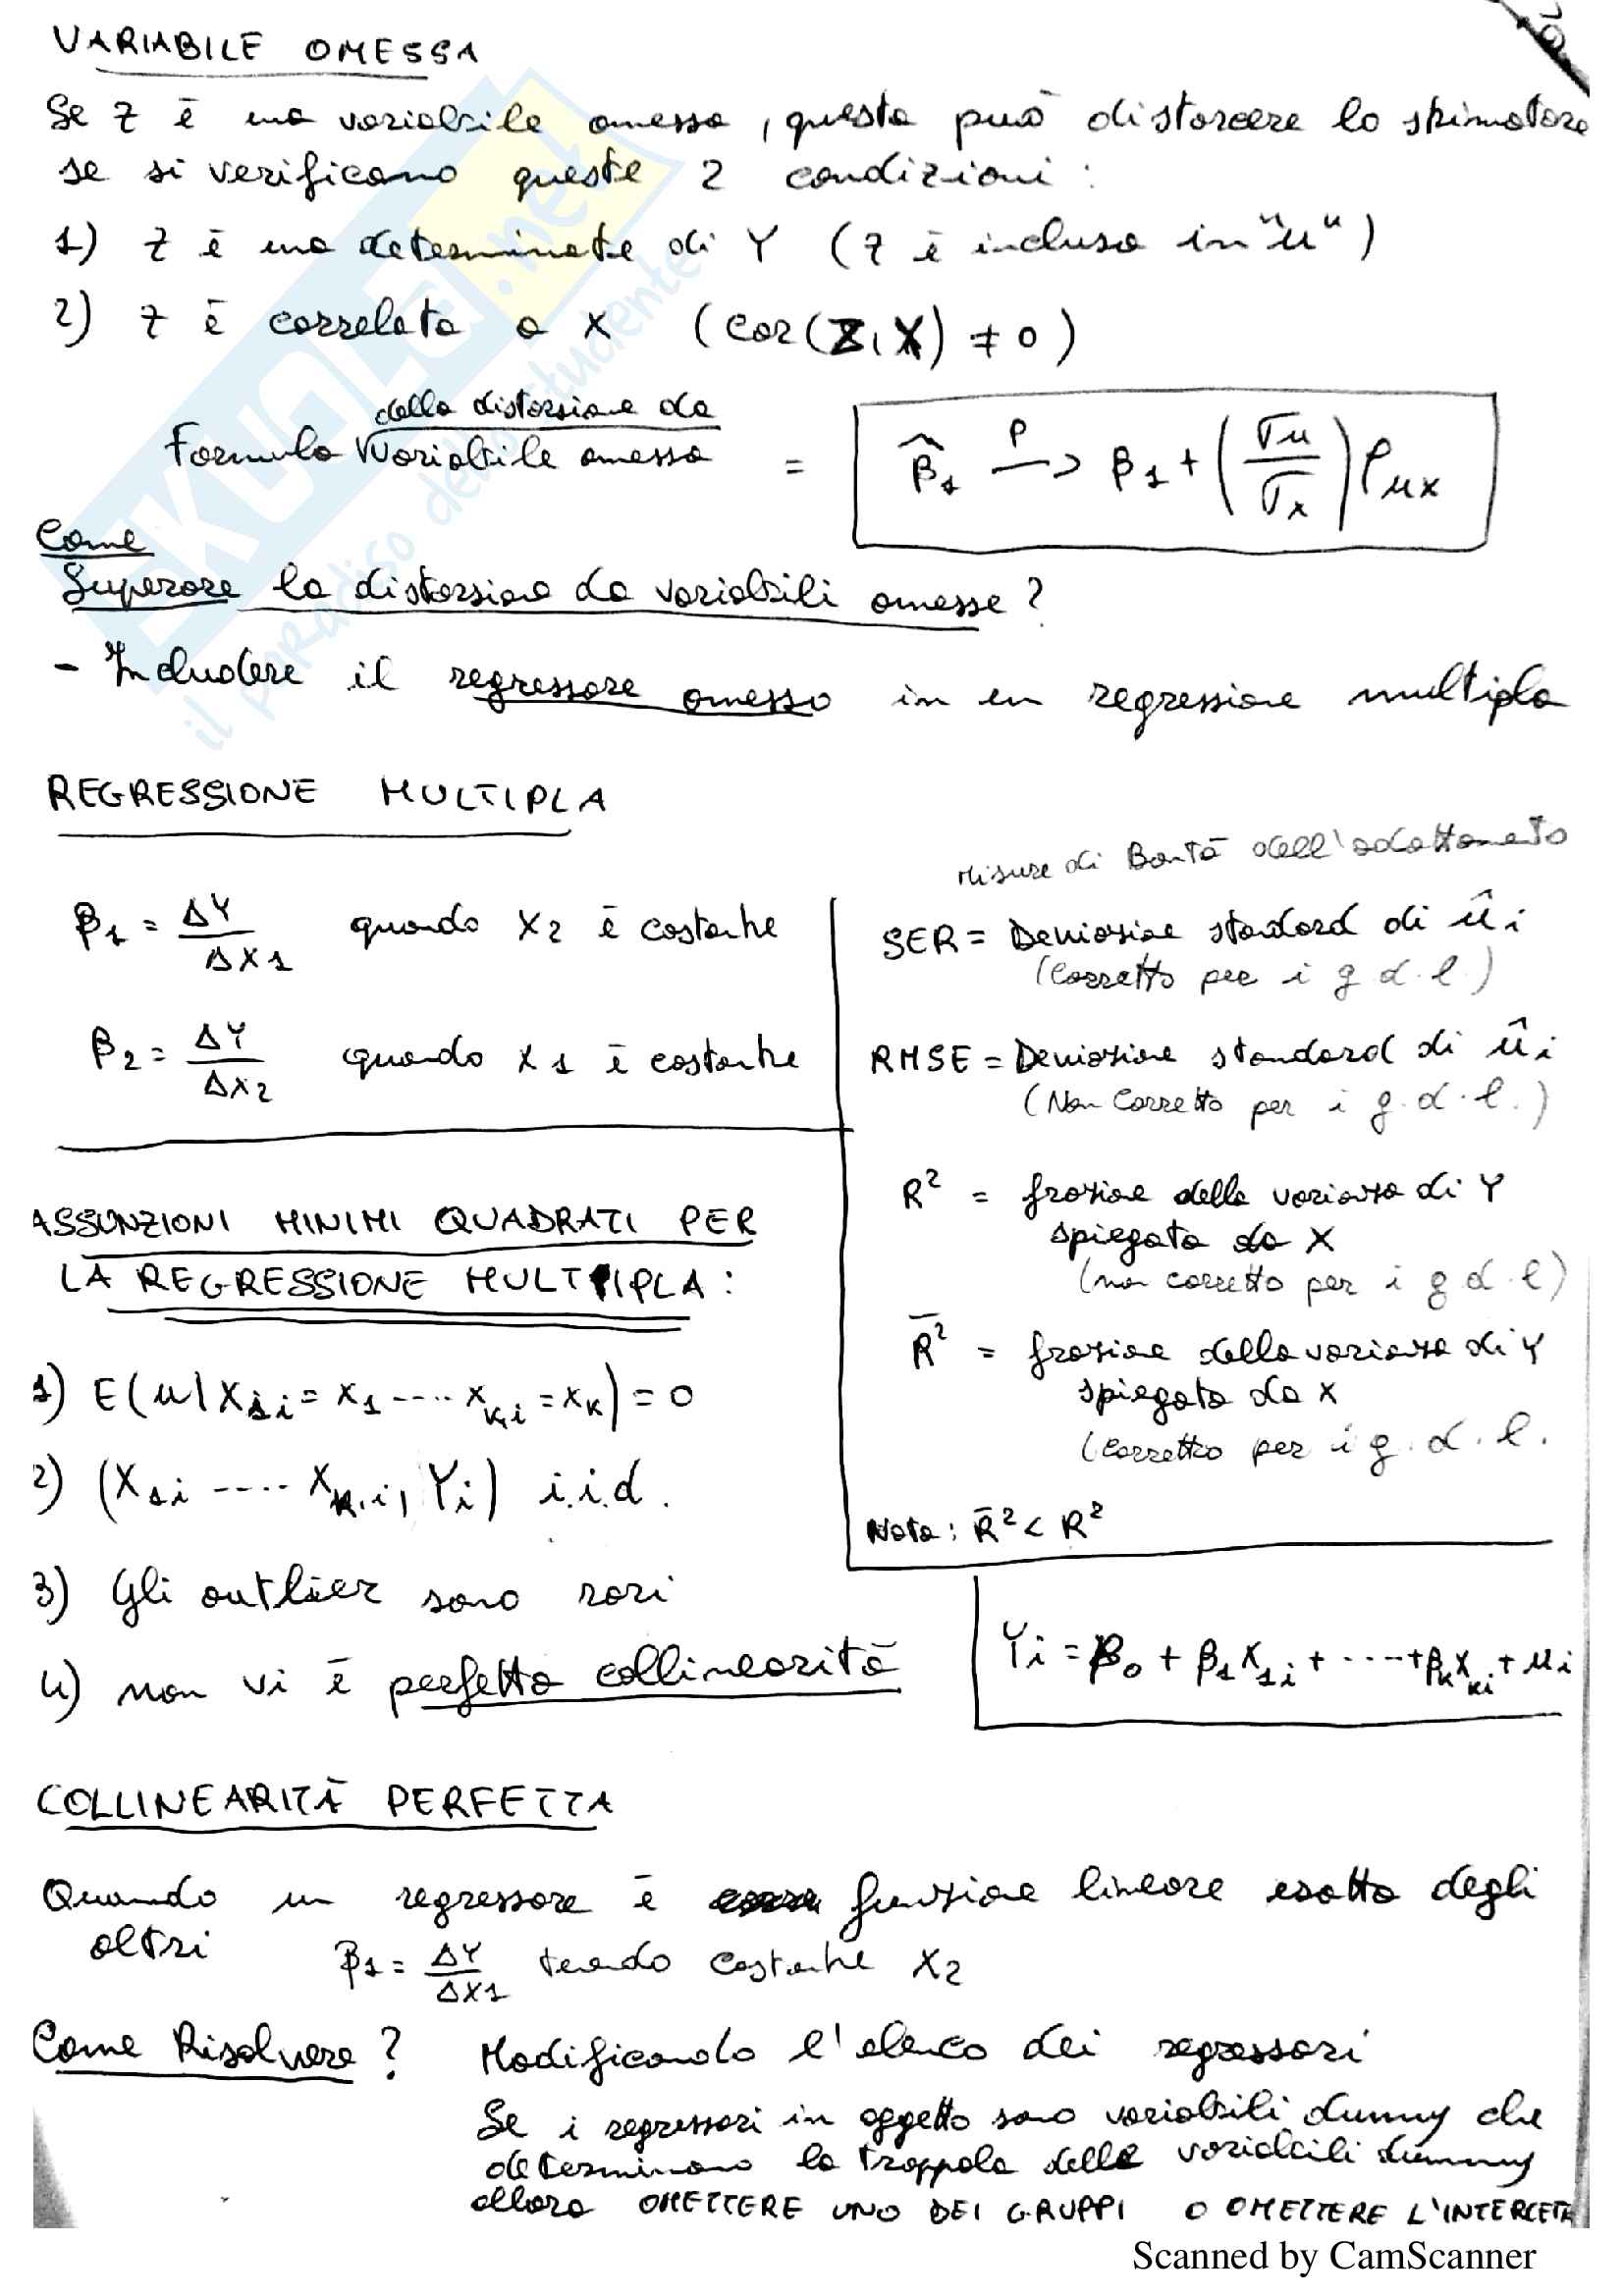 VARIABILE OMESSA
Se Z è una variabile omessa, questa può distorcere lo stimatore
se si verificano queste 2 condizioni:
1) Z è una determinate di Y (Z è inclusa in "u")
2) Z è correlata a X (cor(Z, X) ≠ 0)
Formula della distorsione da variabile omessa = β̂₁ →ᵖ β₁ + (σu/σx) ρux
Come
Superare la distorsione da variabili omesse?
- Includere il regressore omesso in un regressione multipla
REGRESSIONE MULTIPLA
β₁ = ΔY/ΔX₁ quando X₂ è costante
β₂ = ΔY/ΔX₂ quando X₁ è costante
Misure di Bontà dell'adattamento
SER = Deviazione standard di ûi
(Corretto per i g d.l.)
RMSE = Deviazione standard di ûi
(Non Corretto per i g.d.l.)
R² = frazione della varianza di Y
spiegata da X
(non corretto per i g d.l)
R̄² = frazione della varianza di Y
spiegata da X
(Corretto per i g.d.l.
Nota: R̄² < R²
ASSUNZIONI MINIMI QUADRATI PER
LA REGRESSIONE MULTIPLA:
1) E(u|X₁i = x₁ ---- Xki = xk) = 0
2) (X₁i ---- Xki, Yi) i.i.d.
3) Gli outlier sono rari
4) non vi è perfetta collinearità
Yi = β₀ + β₁X₁i + ----+ βkXki + ui
COLLINEARITÀ PERFETTA
Quando un regressore è funzione lineare esatta degli
altri β₁ = ΔY/ΔX₁ tenendo costante X₂
Come Risolvere? Modificando l'elenco dei regressori
Se i regressori in oggetto sono variabili dummy che
determinano la trappola delle variabili dummy
allora OMETTERE UNO DEI GRUPPI O OMETTERE L'INTERCETTA
Scanned by CamScanner
SKUOLA.net
il paradiso dello studente